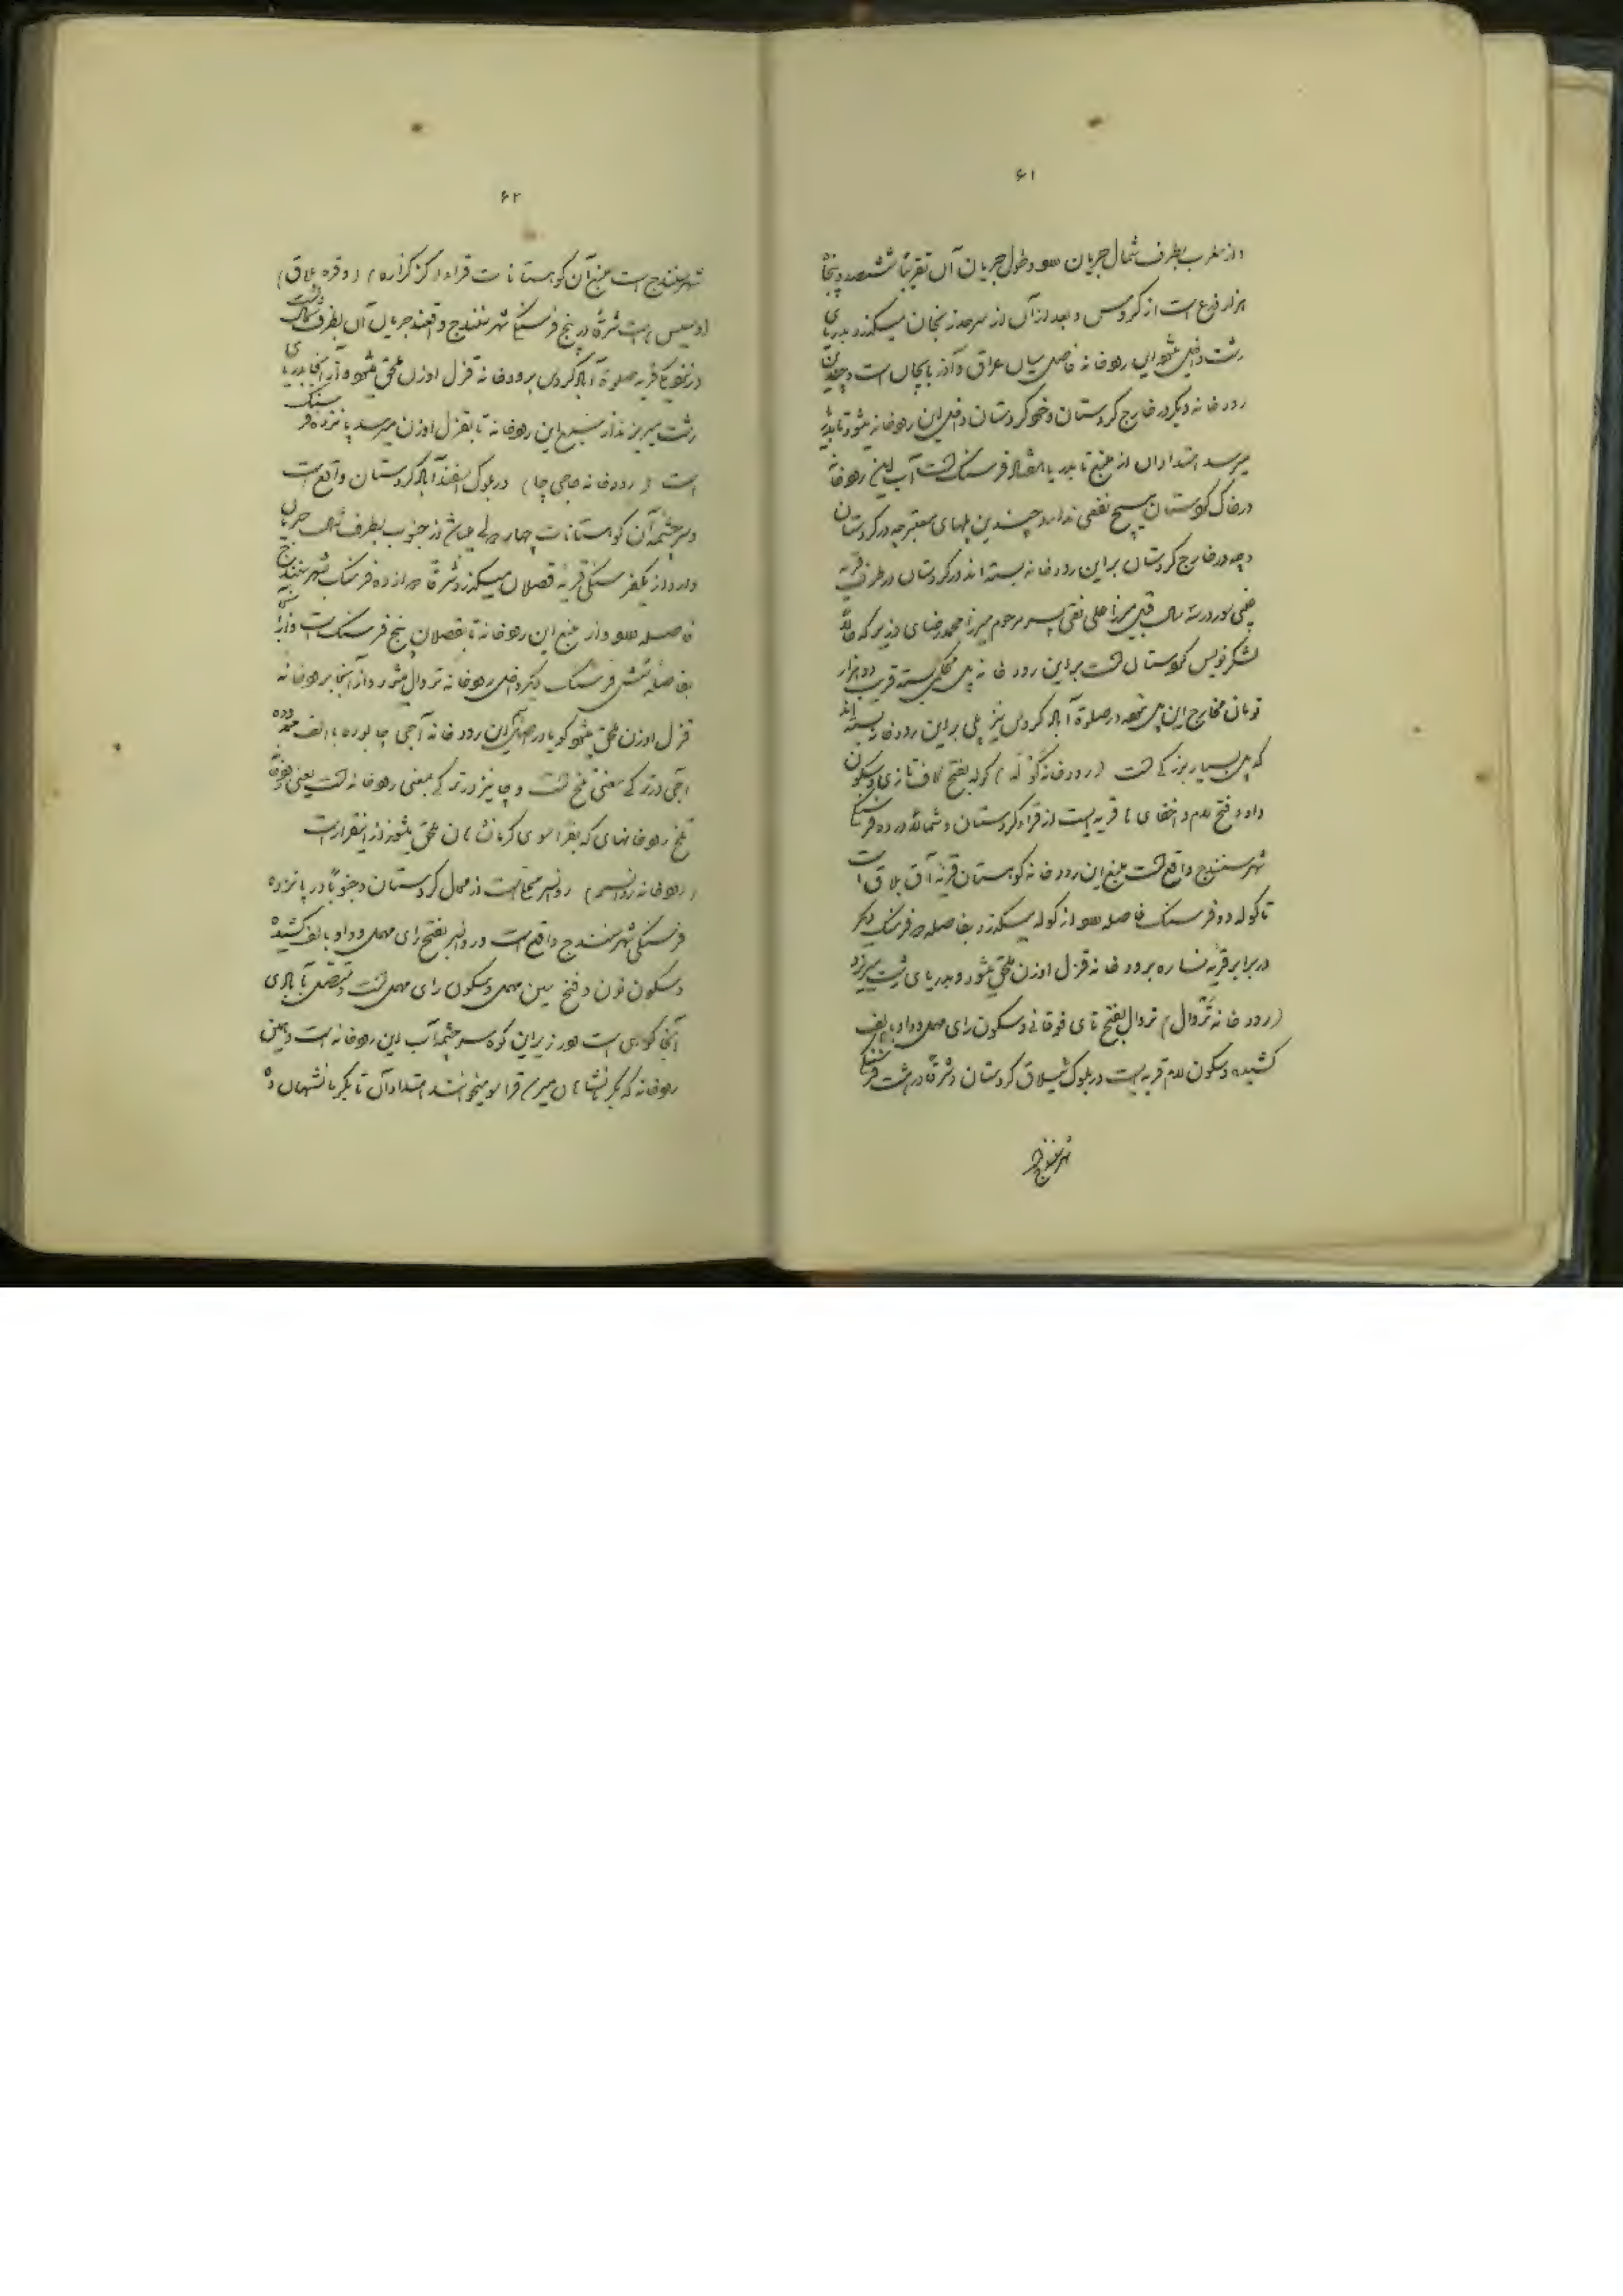 ۶۱
و از مغرب بطرف شمال جریان دارد و طول جریان آن تقریباً ششصد و پنجاه
هزار ذرع است از کروس و بعد از آن از سرحد زنجان میگذرد و بدریای
رشت داخل میشود این رودخانه فاصل میان عراق و آذربایجان است و چندین
رودخانه دیگر در خارج کردستان و خود کردستان داخل این رودخانه میشود تا بدریا
میرسد امتداد آن از منبع تا بدریا هفتاد فرسنگ است آب این رودخانه
در خاک کردستان هیچ نفعی ندارد چندین پلهای معتبر چه در کردستان
و چه در خارج کردستان بر این رودخانه بسته اند در کردستان در طرف قریه
سال قبل میرزا علی نقی پسر مرحوم میرزا محمد رضای وزیر که حالا
لشکرنویس کردستان است بر این رودخانه پل محکمی بسته قریب دو هزار
تومان مخارج این پل شده در صلوة آباد کردستان نیز پلی بر این رودخانه بسته اند
که پل بسیار بزرگی است (رودخانه گوله) گوله بفتح کاف تازی و سکون
واو و فتح لام و اخفای ها قریه ایست از قراء کردستان و شمالاً در ده فرسنگی
شهر سنندج واقع است منبع این رودخانه کوهستان قریه آق بلاق است
تا گوله ده فرسنگ فاصله دارد از گوله میگذرد بفاصله دو فرسنگ دیگر
در برابر قریه نساره برودخانه قزل اوزن ملحق میشود و بدریای رشت میریزد
(رودخانه تروال) تروال بفتح تای فوقانی و سکون رای مهمله و واو بالف
کشیده و سکون لام قریه ایست در بلوک ییلاق کردستان و شرقاً در هشت فرسنگی
شهر سنندج
۶۲
شهر سنندج است منبع آن کوهستانات قراء گزگزاره و قره بلاق
و سیس است شرقاً در پنج فرسنگی شهر سنندج واقعند جریان آن بطرف شمال است
در نزدیکی قریه صلوة آباد کردستان برودخانه قزل اوزن ملحق میشود و از آنجا بدریای
رشت میریزد از منبع این رودخانه تا بقزل اوزن میرسد پانزده فرسنگ
است (رودخانه حاجی چا) در بلوک اسفندآباد کردستان واقع است
و سرچشمه آن کوهستانات چهاردولی میباشد از جنوب بطرف شمال جریان
دارد و از یکفرسنگی قریه قصلان میگذرد و شرقاً دوازده فرسنگ بشهر سنندج
فاصله دارد از منبع این رودخانه تا بقصلان پنج فرسنگ است و از آنجا
بفاصله شش فرسنگ دیگر داخل رودخانه تروال میشود و از آنجا برودخانه
قزل اوزن ملحق میشود گویا در اصل این رودخانه آجی چا بوده با الف ممدوده
آجی در ترکی بمعنی تلخ است و چا نیز در ترکی بمعنی رودخانه است یعنی رودخانه
تلخ رودخانهای که بقراسوی کرمانشاهان ملحق میشوند از اینقرار است
(رودخانه روانسر) روانسر محلی است از محال کردستان و جنوباً در پانزده
فرسنگی شهر سنندج واقع است و روانسر بفتح رای مهمله و واو بالف کشیده
و سکون نون و فتح سین مهمله و سکون رای مهمله است و متصل بآبادی
آنجا کوهی است و از زیر این کوه سرچشمه آب این رودخانه است و همین
رودخانه که بکرمانشاهان میرسد قراسو میخوانند امتداد آن تا بکرمانشهان ده